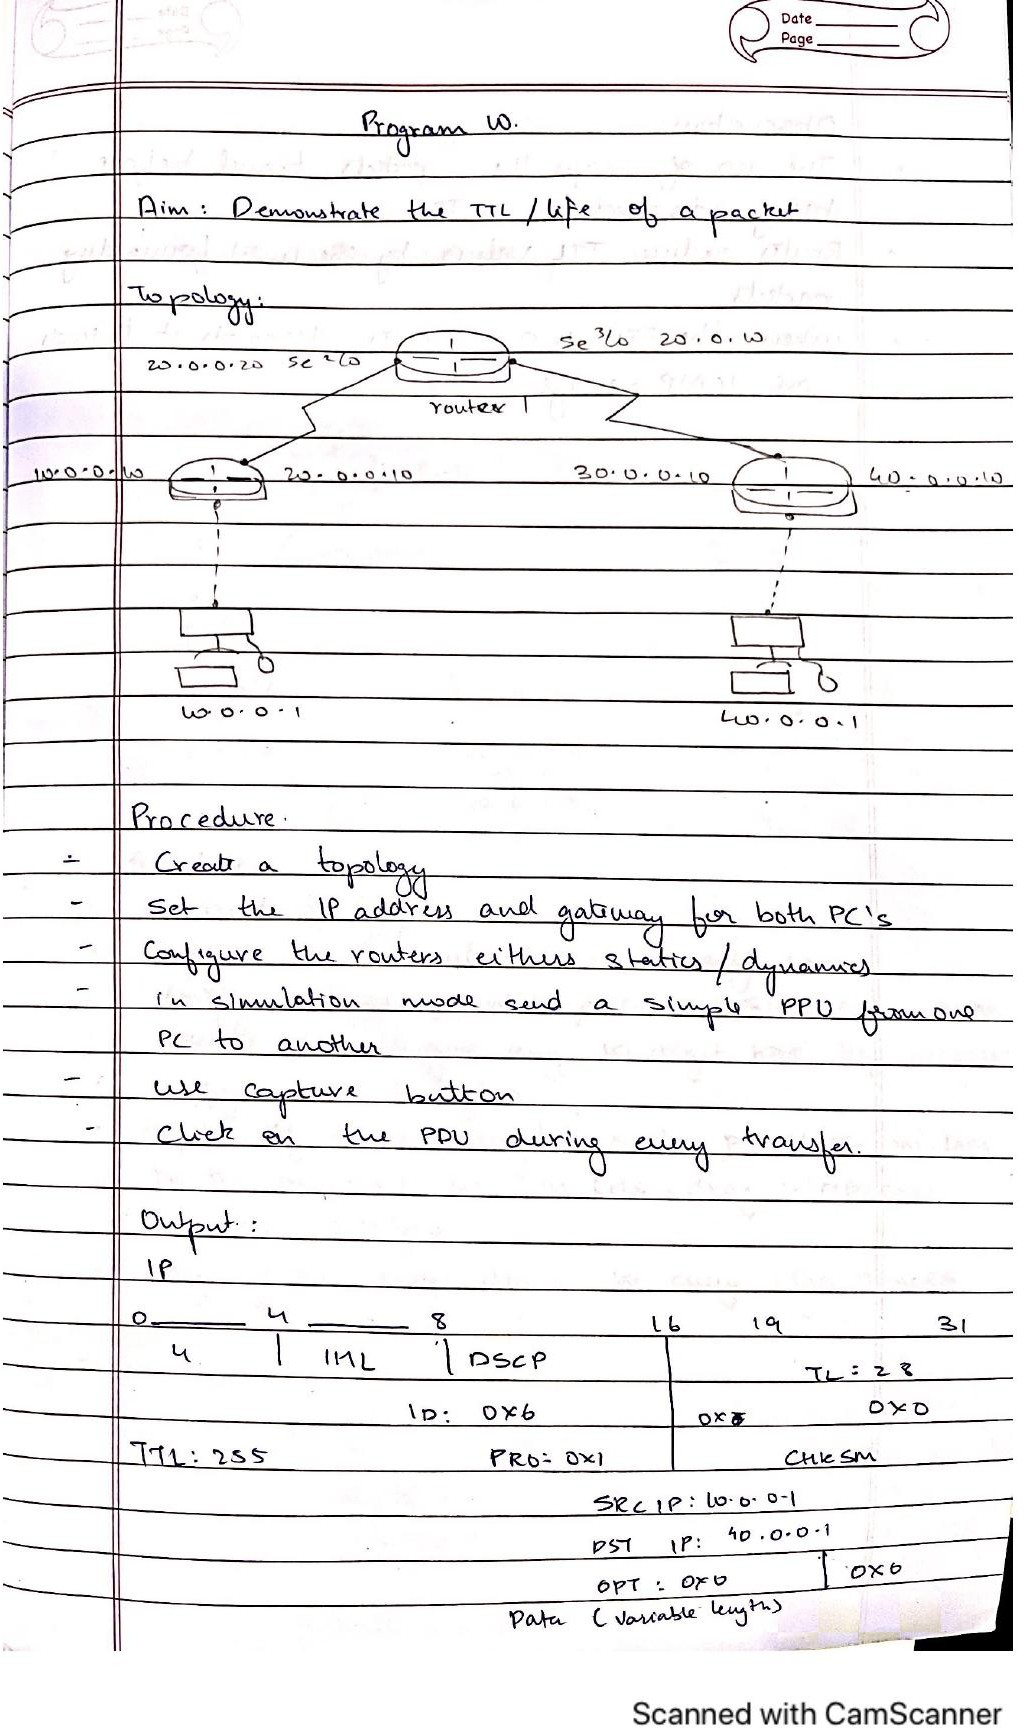 Date
Page
Program 10.
Aim: Demonstrate the TTL / life of a packet
Topology:
Se 3/0 20.0.10
20.0.0.20 Se 2/0
router 1
10.0.0.10 20.0.0.10 30.0.0.10 40.0.0.10
10.0.0.1 40.0.0.1
Procedure.
- Create a topology
- Set the IP address and gateway for both PC's
- Configure the routers eithers statics / dynamics
- in simulation mode send a simple PPU from one
PC to another
- use capture button
- Click on the PDU during every transfer.
Output:
IP
0 4 8 16 19 31
4 | IHL | DSCP TL: 28
ID: 0X6 0X0
TTL: 255 PRO: 0X1 CHKSM
SRC IP: 10.0.0.1
DST IP: 40.0.0.1
OPT: 0X0 0X0
Data (variable length)
Scanned with CamScanner